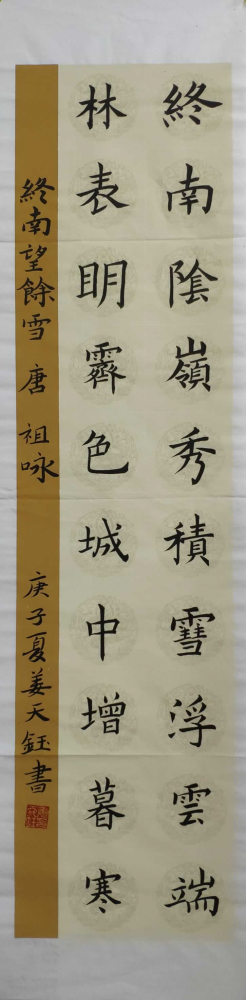 終南陰嶺秀積雪浮雲端
林表明霽色城中增暮寒
終南望餘雪 唐 祖咏 庚子夏姜天鈺書